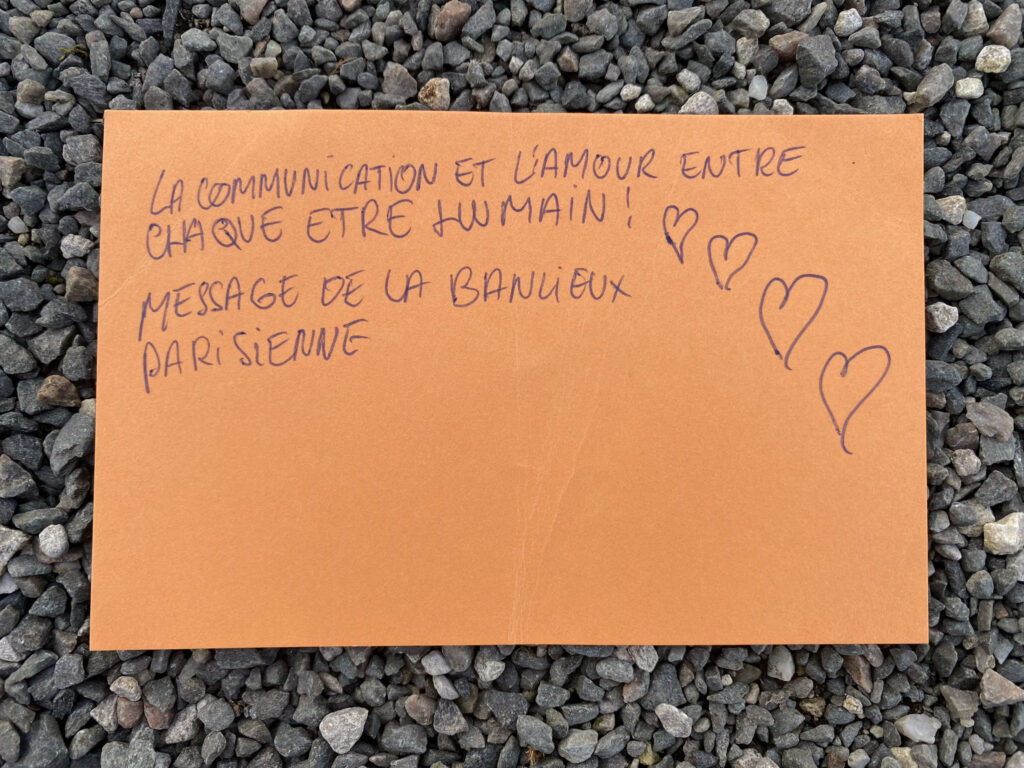 LA COMMUNICATION ET L'AMOUR ENTRE
CHAQUE ETRE HUMAIN !
MESSAGE DE LA BANLIEUX
PARISIENNE